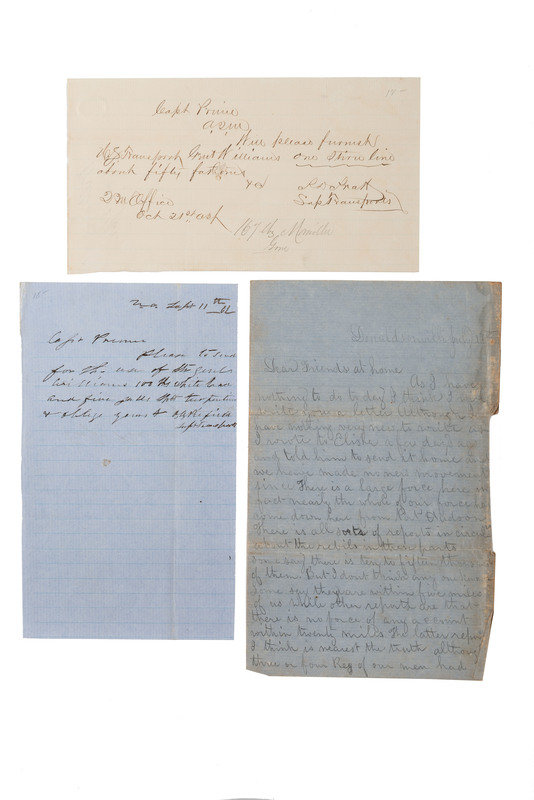 Capt Prime
A.Q.M.
Will please furnish
U.S. Transport Genl Williams one Stern line
about fifty fathoms
Supt Transports
Q M Office
Oct 21st
167 lbs Manilla
Sept 11th
Capt
please to send
for the use of Str Genl
Williams 100 lbs white lead
and five galls spts turpentine
& oblige yours &
Supt Transpts
July
Dear Friends at home
As I have
nothing to do to day I think I will
write you a letter Although I
have nothing very new to write as
I wrote to Elisha a few days ago
and told him to send it home and
we have made no new movement
since There is a large force here in
fact nearly the whole of our force has
come down here from Port Hudson
There is all sorts of reports in
about the rebils in these parts
Some say there is ten to fifteen thousand
of them But I dont think any one knows
some say they are within five miles
of us while other reports are that
there is no force of any account
within twenty miles The latter report
I think is nearest the truth although
three or four Reg of our men had